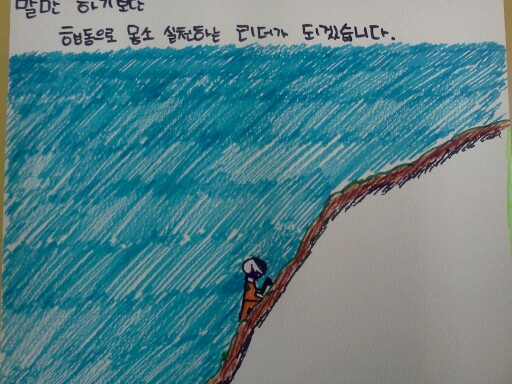 말만 하기보단
행동으로 몸소 실천하는 리더가 되겠습니다.